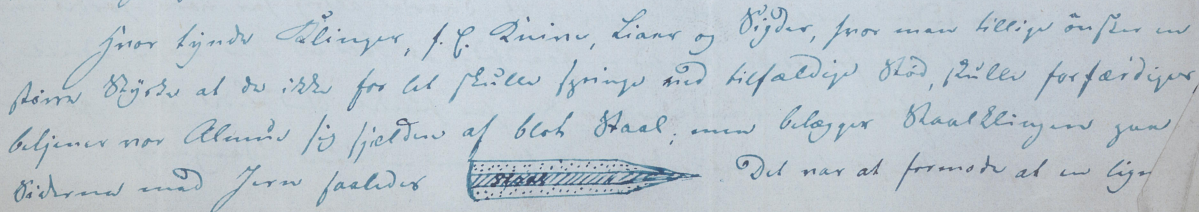 Hvor tynde Klinger, f. E. Knive, Liaer og Sigder, hvor man tillige önsker en
större Styrke at de ikke for let skulle springe ved tilfældige Stöd, skulle forfærdiges,
betjener vor Almue sig sjelden af blot Staal, men belægger Staalklingen paa
Siderne med Jern saaledes Staal Det var at formode at en lige